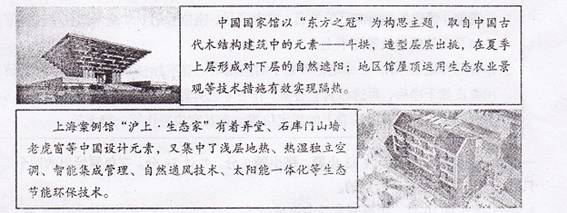 中国国家馆以“东方之冠”为构思主题，取自中国古
代木结构建筑中的元素——斗拱，造型层层出挑，在夏季
上层形成对下层的自然遮阳；地区馆屋顶运用生态农业景
观等技术措施有效实现隔热。
上海案例馆“沪上·生态家”有着弄堂、石库门山墙、
老虎窗等中国设计元素，又集中了浅层地热、热湿独立空
调、智能集成管理、自然通风技术、太阳能一体化等生态
节能环保技术。